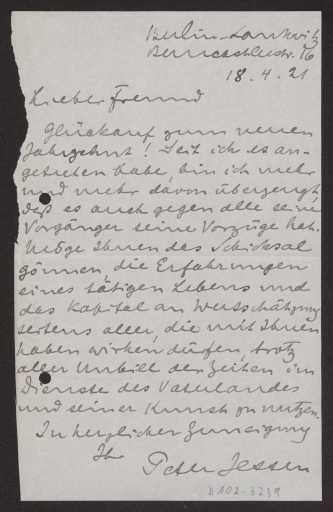 Berlin-Lankwitz
18.4.21
Lieber Freund
Glückauf zum neuen
Jahrzehnt! Seit ich es an-
getreten habe, bin ich mehr
und mehr davon überzeugt,
daß es auch gegen alle seine
Vorgänger seine Vorzüge hat.
Möge Ihnen das Schicksal
gönnen, die Erfahrungen
eines tätigen Lebens und
das Kapital an Wertschätzung
seitens aller, die mit Ihnen
haben wirken dürfen, trotz
aller Unbill der Zeiten im
Dienste des Vaterlandes
und seiner Kunst zu nutzen.
In herzlicher Zuneigung
Ihr
Peter Jessen